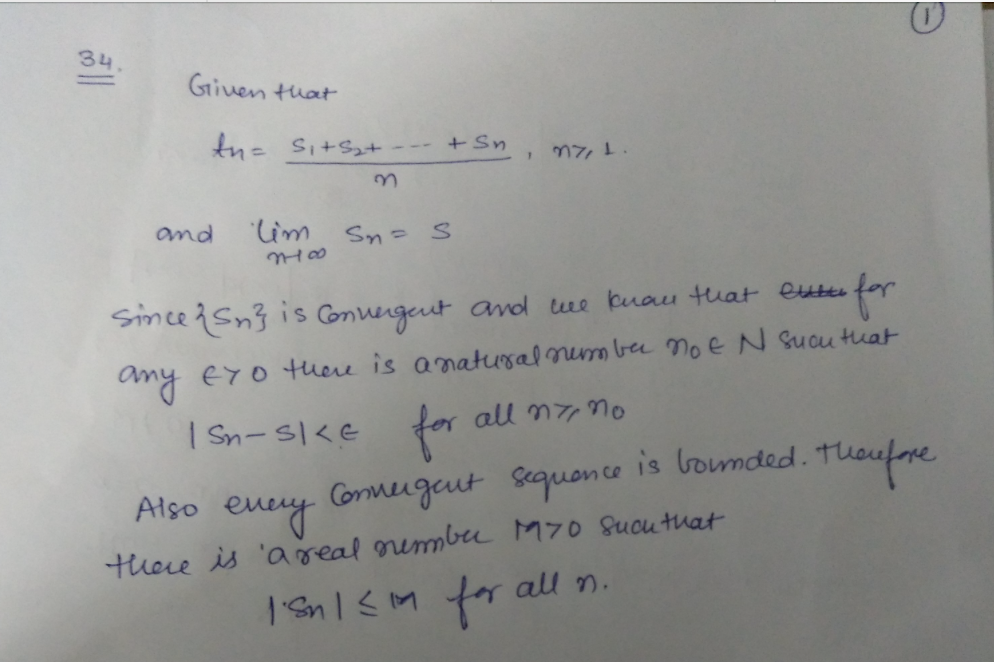 ①
34.
Given that
tn = S1+S2+ --- + Sn / n , n≥1.
and lim n→∞ Sn = S
Since {Sn} is Convergent and we know that for
any ϵ>0 there is a natural number n0 ϵ N such that
|Sn-S|<ϵ for all n≥n0
Also every Convergent sequence is bounded. therefore
there is a real number M>0 such that
|Sn| ≤ M for all n.